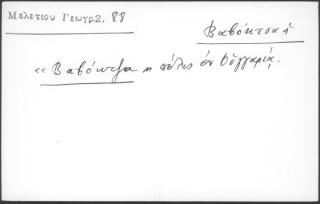 Μελετίου Γεωγρ2, 88
Βαβότσα ἡ
«Βαβότζα ἡ πόλις ἐν Οὐγγαρίᾳ.